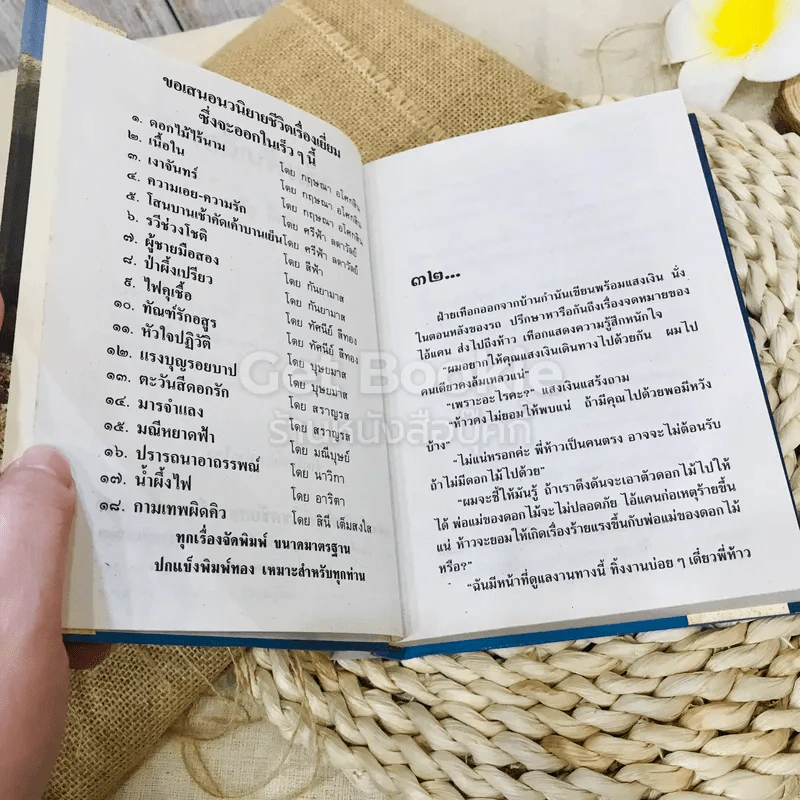 ขอเสนอนวนิยายชีวิตเรื่องเยี่ยม
ซึ่งจะออกในเร็ว ๆ นี้
๑. ดอกไม้ไร้นาม โดย กฤษณา อโศกสิน
๒. เนื้อใน โดย กฤษณา อโศกสิน
๓. เงาจันทร์ โดย กฤษณา อโศกสิน
๔. ความเอย-ความรัก โดย ศรีฟ้า ลดาวัลย์
๕. โสนบานเช้าคัดเค้าบานเย็น โดย ศรีฟ้า ลดาวัลย์
๖. รวีช่วงโชติ โดย สีฟ้า
๗. ผู้ชายมือสอง โดย กันยามาส
๘. ป่าผึ้งเปรียว โดย กันยามาส
๙. ไฟคุเชื้อ โดย ทัศนีย์ สีทอง
๑๐. ทัณฑ์รักอสูร โดย ทัศนีย์ สีทอง
๑๑. หัวใจปฏิวัติ โดย บุษยมาส
๑๒. แรงบุญรอยบาป โดย บุษยมาส
๑๓. ตะวันสีดอกรัก โดย สราญรส
๑๔. มารจำแลง โดย สราญรส
๑๕. มณีหยาดฟ้า โดย มณีบุษย์
๑๖. ปรารถนาอาถรรพณ์ โดย นาวิกา
๑๗. น้ำผึ้งไฟ โดย อาริตา
๑๘. กามเทพผิดคิว โดย สินี เต็มสงใส
ทุกเรื่องจัดพิมพ์ ขนาดมาตรฐาน
ปกแข็งพิมพ์ทอง เหมาะสำหรับทุกท่าน
๓๒...
ฝ่ายเทือกออกจากบ้านกำนันเขียนพร้อมแสงเงิน นั่ง
ในตอนหลังของรถ ปรึกษาหารือกันถึงเรื่องจดหมายของ
ไอ้แคน ส่งไปถึงห้าว เทือกแสดงความรู้สึกหนักใจ
"ผมอยากให้คุณแสงเงินเดินทางไปด้วยกัน ผมไป
คนเดียวคงล้มเหลวแน่"
"เพราะอะไรคะ?" แสงเงินแสร้งถาม
"ห้าวคงไม่ยอมให้พบแน่ ถ้ามีคุณไปด้วยพอมีหวัง
บ้าง"
"ไม่แน่หรอกค่ะ พี่ห้าวเป็นคนตรง อาจจะไม่ต้อนรับ
ถ้าไม่มีดอกไม้ไปด้วย"
"ผมจะชี้ให้มันรู้ ถ้าเราดึงดันจะเอาตัวดอกไม้ไปให้
ได้ พ่อแม่ของดอกไม้จะไม่ปลอดภัย ไอ้แคนก่อเหตุร้ายขึ้น
แน่ ห้าวจะยอมให้เกิดเรื่องร้ายแรงขึ้นกับพ่อแม่ของดอกไม้
หรือ?"
"ฉันมีหน้าที่ดูแลงานทางนี้ ทิ้งงานบ่อย ๆ เดี๋ยวพี่ห้าว
Get Bookie
ร้านหนังสือบุ๊คกี้